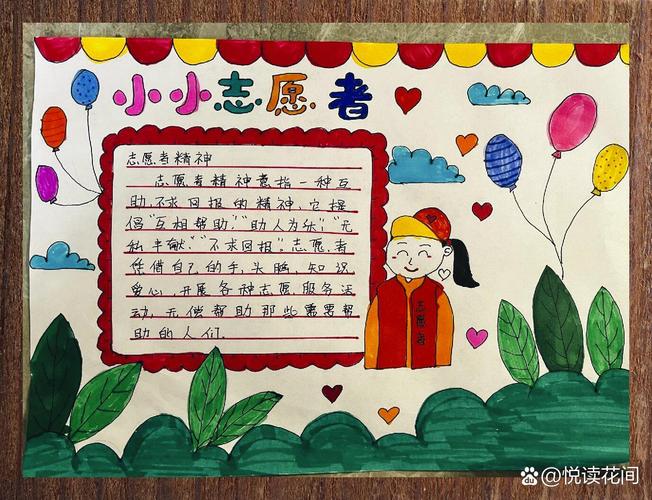 小小志愿者
志愿者精神
志愿者精神意指一种互
助、不求回报的精神，它提
倡“互相帮助”“助人为乐”“无
私奉献”“不求回报”。志愿者
凭借自己的手、头脑、知识
爱心，开展各种志愿服务活
动，无偿帮助那些需要帮
助的人们.
志愿者
Baidu @悦读花间